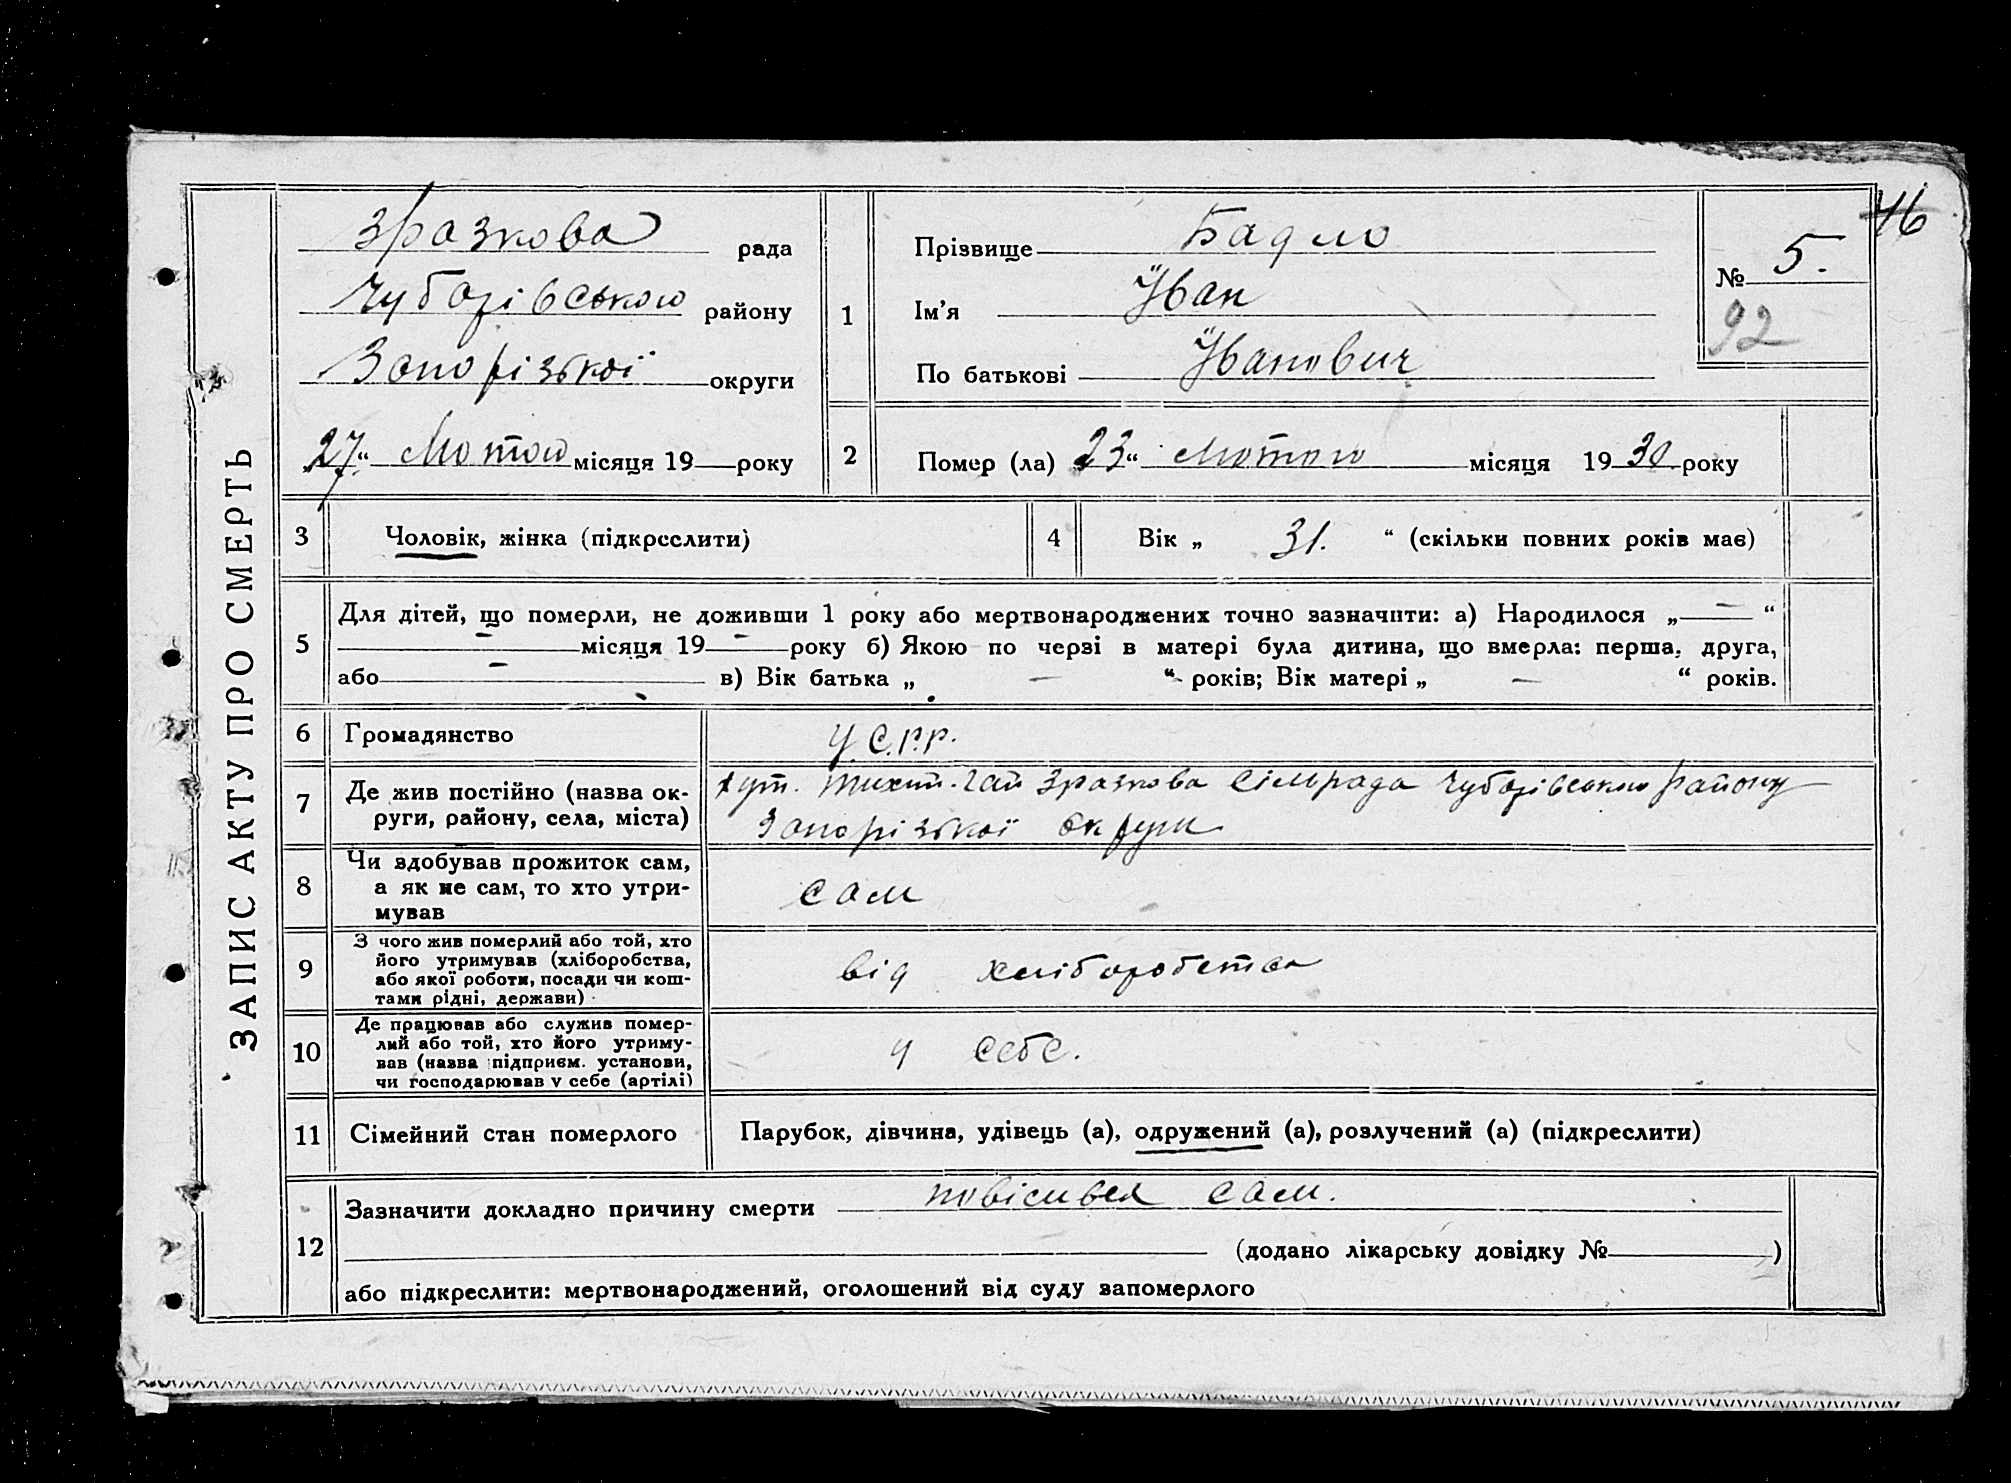 46
ЗАПИС АКТУ ПРО СМЕРТЬ
Зразкова рада
Чубарівського району
Запорізької округи
27 " Лютого місяця 19 року
1
Прізвище Бадло
Ім'я Іван
По батькові Іванович
№ 5.
92
2
Помер (ла) 23 " Лютого місяця 1930 року
3 Чоловік, жінка (підкреслити)
4 Вік „ 31. “ (скільки повних років має)
5
Для дітей, що померли, не доживши 1 року або мертвонароджених точно зазначити: а) Народилося „ — “
— місяця 19 — року б) Якою по черзі в матері була дитина, що вмерла: перша, друга,
або — в) Вік батька „ — “ років; Вік матері „ — “ років.
6 Громадянство У.С.Р.Р.
7 Де жив постійно (назва ок-
руги, району, села, міста)
хут. Зразкова Сільрада Чубарівського району
Запорізької округи
8 Чи здобував прожиток сам,
а як не сам, то хто утри-
мував
сам
9 З чого жив померлий або той, хто
його утримував (хліборобства,
або якої роботи, посади чи кош-
тами рідні, держави)
від хліборобства
10 Де працював або служив помер-
лий або той, хто його утриму-
вав (назва підприєм. установи,
чи господарював у себе (артілі)
у себе.
11 Сімейний стан померлого Парубок, дівчина, удівець (а), одружений (а), розлучений (а) (підкреслити)
12
Зазначити докладно причину смерти повісився сам.
(додано лікарську довідку № )
або підкреслити: мертвонароджений, оголошений від суду запомерлого